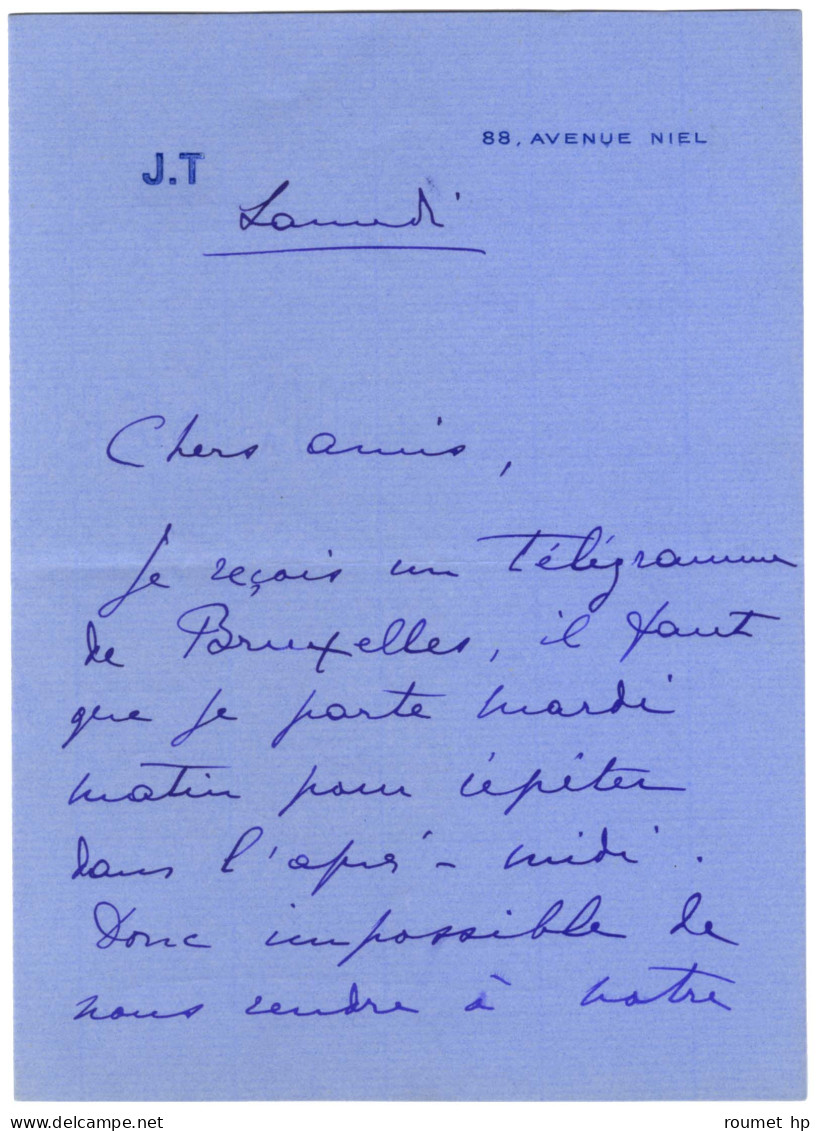 88, AVENUE NIEL
J.T
Samedi
Chers amis,
Je reçois un télégramme
de Bruxelles, il faut
que je parte mardi
matin pour répéter
dans l'aprés-midi.
Donc impossible de
nous rendre à notre
delcampe.net
roumet hp